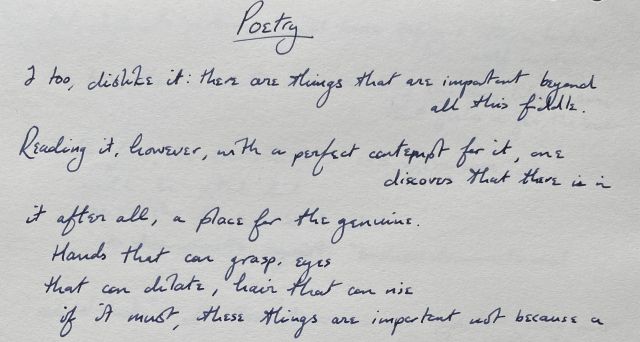 Poetry
I too, dislike it: there are things that are important beyond
all this fiddle.
Reading it, however, with a perfect contempt for it, one
discovers that there is in
it after all, a place for the genuine.
Hands that can grasp, eyes
that can dilate, hair that can rise
if it must, these things are important not because a